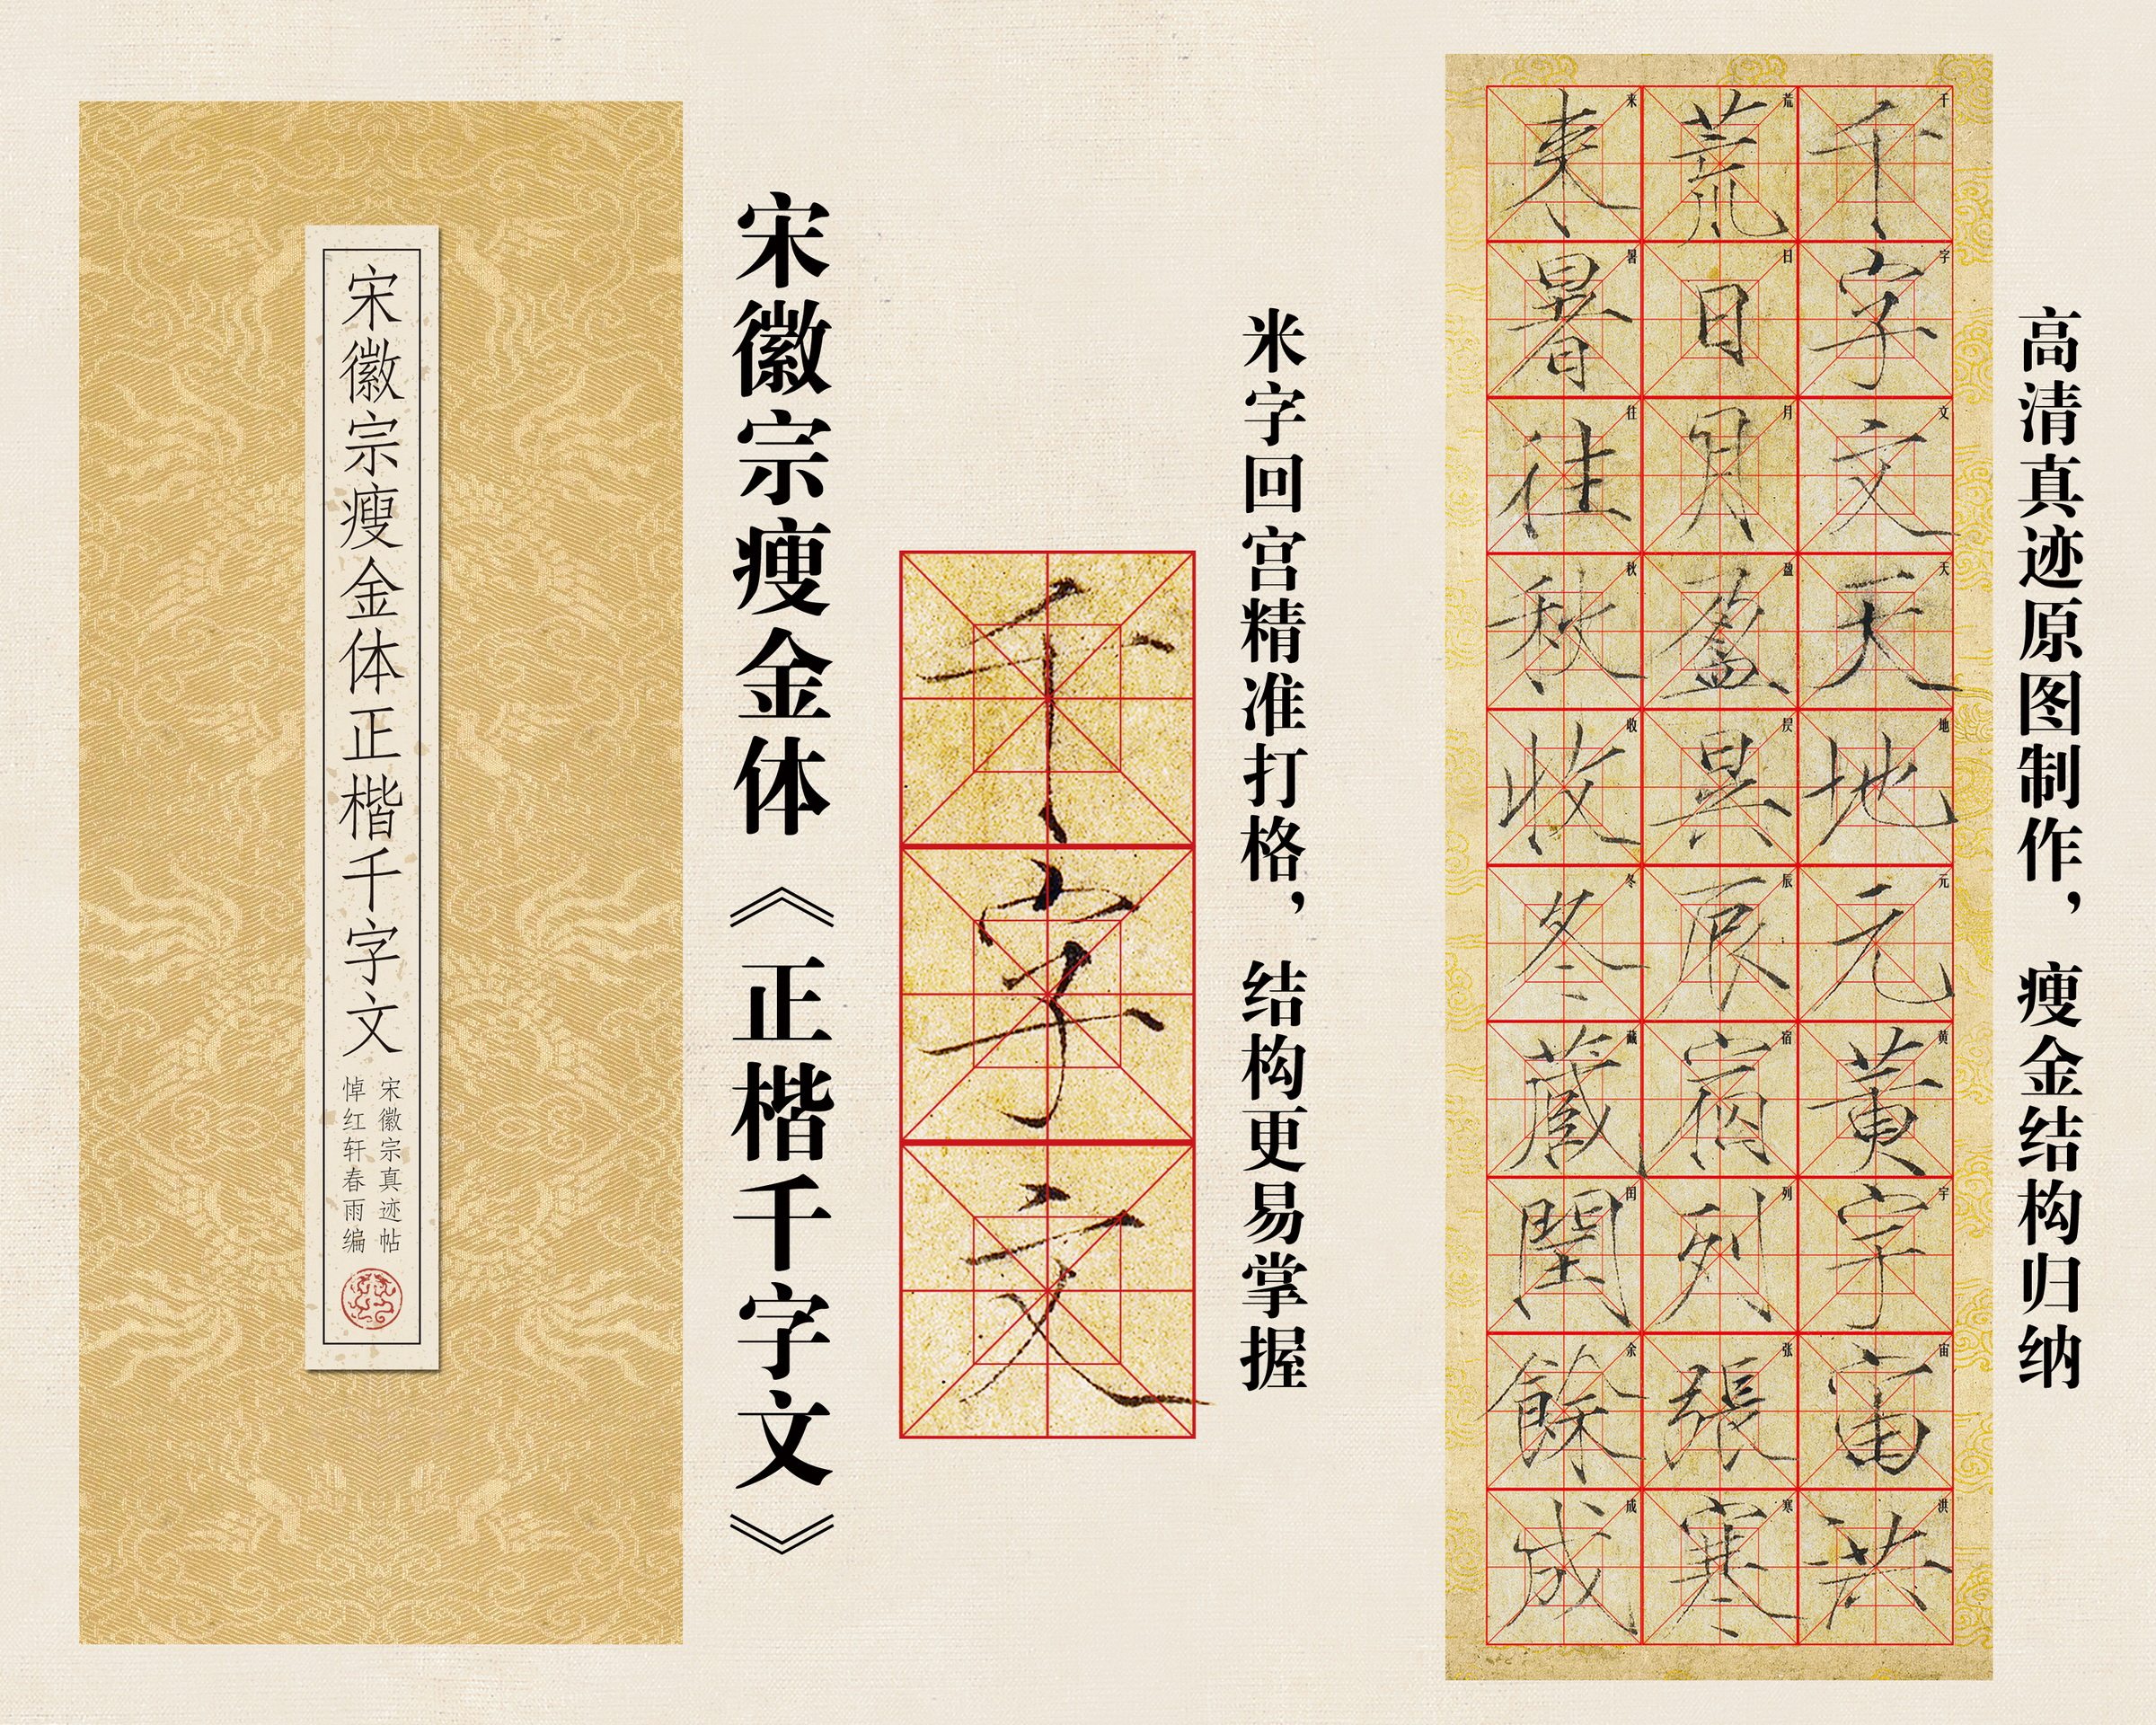 宋徽宗瘦金体正楷千字文
宋徽宗真迹帖
悼红轩春雨编
宋徽宗瘦金体《正楷千字文》
千字文
米字回宫精准打格，结构更易掌握
千字文天地元黄宇宙洪
千字文天地元黄宇宙洪
荒日月盈昃辰宿列張寒
荒日月盈昃辰宿列张寒
来暑往秋收冬藏閏餘成
来暑往秋收冬藏闰余成
高清真迹原图制作，瘦金结构归纳